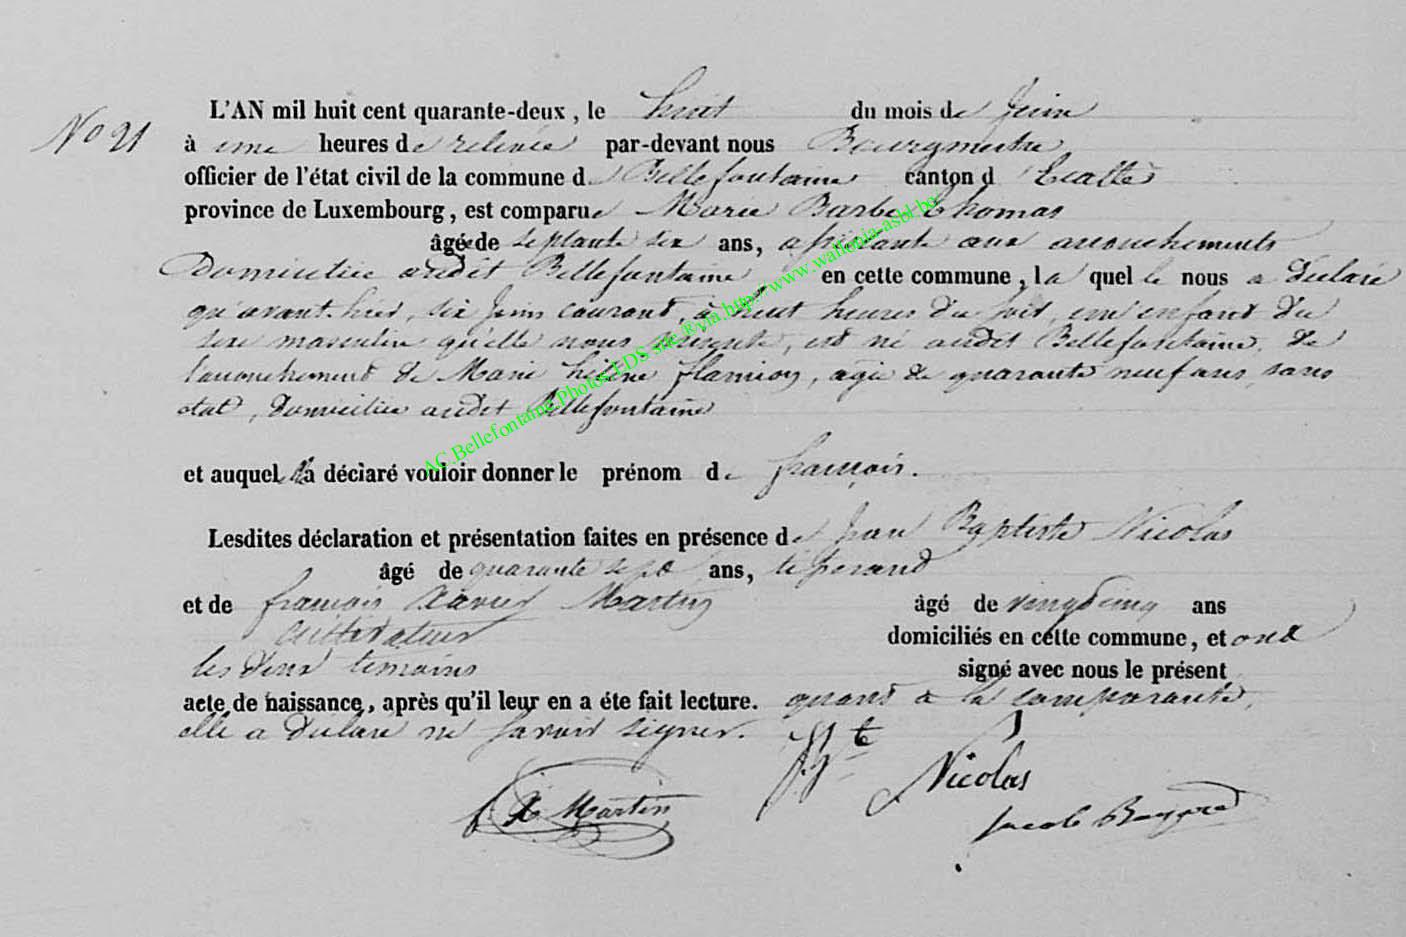 No 21
L'AN mil huit cent quarante-deux, le huit du mois de Juin
à une heures de relevée par-devant nous Bourgmestre
officier de l'état civil de la commune de Bellefontaine canton d'Etalle
province de Luxembourg, est comparue Marie Barbe Thomas
âgée de septante six ans, assistante aux accouchements
Domiciliée audit Bellefontaine en cette commune, la quelle nous a déclaré
qu'avant hier, six Juin courant, à huit heures du soir, un enfant du
sexe masculin qu'elle nous présente, est né audit Bellefontaine, de
l'accouchement de Marie hélène flamion, agée de quarante neuf ans, sans
état, domiciliée audit Bellefontaine
et auquel a déclaré vouloir donner le prénom de françois.
Lesdites déclaration et présentation faites en présence de Jean Baptiste Nicolas
âgé de quarante sept ans, tisserand
et de françois Xavier Martin âgé de vingt cinq ans
cultivateur domiciliés en cette commune, et ont
les deux témoins signé avec nous le présent
acte de naissance, après qu'il leur en a éte fait lecture. quant à la comparante,
elle a déclaré ne savoir signer.
J Bte Nicolas
f X Martin
AC.Bellefontaine Photos LDS site ®via http://www.wallonia-asbl.be/